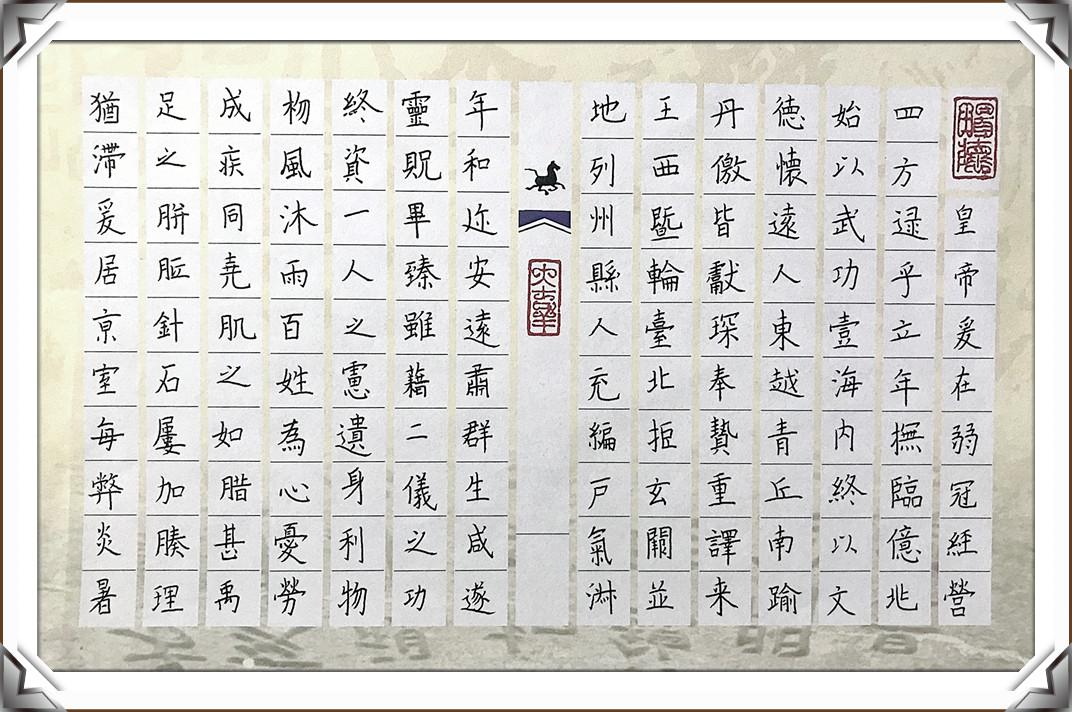 皇帝爰在弱冠經營
四方逮乎立年撫臨億兆
始以武功壹海内終以文
德懷遠人東越青丘南踰
丹儌皆獻琛奉贄重譯来
王西暨輪臺北拒玄闕並
地列州縣人充編戶氣淑
年和迩安遠肅群生咸遂
靈貺畢臻雖藉二儀之功
終資一人之慮遺身利物
櫛風沐雨百姓為心憂勞
成疾同堯肌之如腊甚禹
足之胼胝針石屢加腠理
猶滯爰居京室每弊炎暑